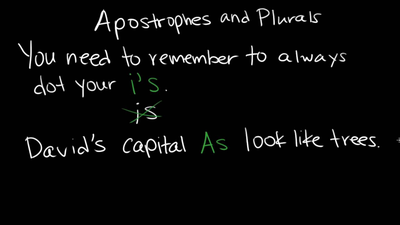 Apostrophes and Plurals
You need to remember to always
dot your i's.
is
David's capital As look like trees.